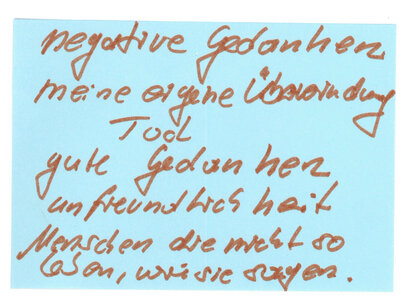 negative Gedanken
meine eigene Überwindung
Tod
gute Gedanken
unfreundlichkeit
Menschen die nicht so
leben, wie sie sagen.